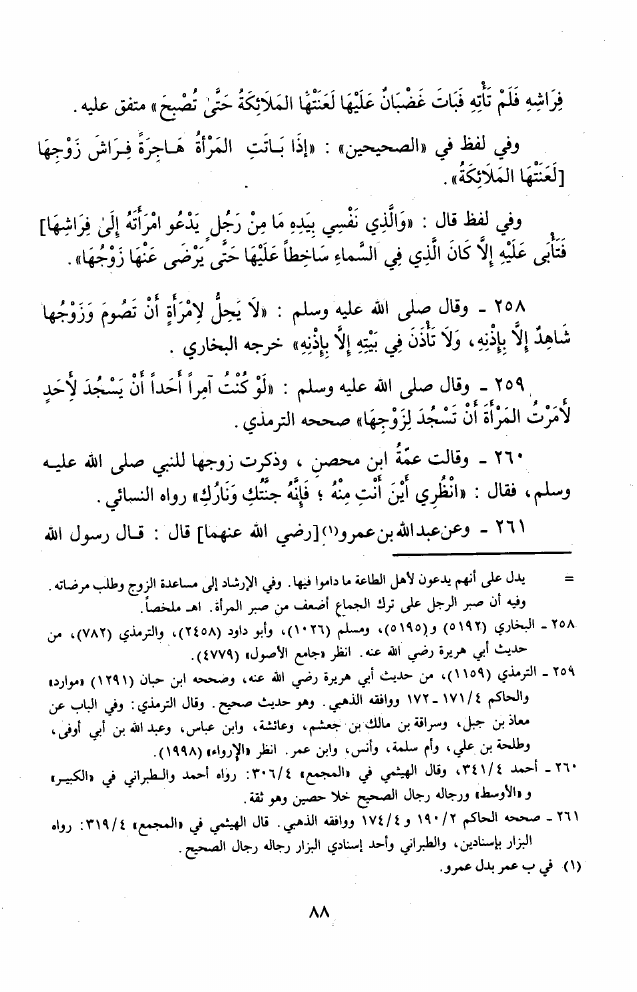 فِرَاشِهِ فَلَمْ تَأْتِهِ فَبَاتَ غَضْبَانٌ عَلَيْهَا لَعَنَتْهَا المَلَائِكَةُ حَتَّىٰ تُصْبِحَ» متفق عليه.
وفي لفظ في «الصحيحين» : «إذَا بَاتَتِ المَرْأةُ هَاجِرَةً فِرَاشَ زَوْجِهَا
[لَعَنَتْهَا المَلَائِكَةُ».
وفي لفظ قال : «وَالَّذِي نَفْسِي بِيَدِهِ مَا مِنْ رَجُلٍ يَدْعُو امْرَأَتَهُ إِلَىٰ فِرَاشِهَا]
فَتَأْبَى عَلَيْهِ إلَّا كَانَ الَّذِي فِي السَّماءِ سَاخِطاً عَلَيْهَا حَتَّى يَرْضَى عَنْهَا زَوْجُهَا».
٢٥٨ ـ وقال صلى الله عليه وسلم : «لَا يَحِلُّ لِامْرَأةٍ أَنْ تَصُومَ وَزَوْجُها
شَاهِدٌ إلَّا بِإِذْنِهِ، وَلَا تَأْذَنَ فِي بَيْتِهِ إلَّا بِإِذْنِهِ» خرجه البخاري .
٢٥٩ ـ وقال صلى الله عليه وسلم : «لَوْ كُنْتُ آمِراً أَحَداً أَنْ يَسْجُدَ لِأَحَدٍ
لأَمَرْتُ المَرْأَةَ أَنْ تَسْجُدَ لِزَوْجِهَا» صححه الترمذي.
٢٦٠ ـ وقالت عمّةُ ابن محصنٍ ، وذكرت زوجها للنبي صلى الله عليه
وسلم، فقال : «انْظُرِي أَيْنَ أَنْتِ مِنْهُ ؛ فَإِنَّهُ جَنَّتُكِ وَنَارُكِ» رواه النسائي.
٢٦١ ـ وعن عبد الله بن عمرو(١)[رضي الله عنهما] قال : قال رسول الله
= يدل على أنهم يدعون لأهل الطاعة ما داموا فيها. وفي الإرشاد إلى مساعدة الزوج وطلب مرضاته.
وفيه أن صبر الرجل على ترك الجماع أضعف من صبر المرأة. اهـ ملخصاً.
٢٥٨ ـ البخاري (٥١٩٢) و(٥١٩٥)، ومسلم (١٠٢٦)، وأبو داود (٢٤٥٨)، والترمذي (٧٨٢)، من
حديث أبي هريرة رضي الله عنه. انظر «جامع الأصول» (٤٧٧٩).
٢٥٩ ـ الترمذي (١١٥٩)، من حديث أبي هريرة رضي الله عنه، وصححه ابن حبان (١٢٩١) «موارد»
والحاكم ١٧١/٤ـ١٧٢ ووافقه الذهبي. وهو حديث صحيح. وقال الترمذي: وفي الباب عن
معاذ بن جبل، وسراقة بن مالك بن جعشم، وعائشة، وابن عباس، وعبد الله بن أبي أوفى،
وطلحة بن علي، وأم سلمة، وأنس، وابن عمر. انظر «الإرواء» (١٩٩٨).
٢٦٠ ـ أحمد ٣٤١/٤، وقال الهيثمي في «المجمع» ٣٠٦/٤: رواه أحمد والطبراني في «الكبير»
و «الأوسط» ورجاله رجال الصحيح خلا حصين وهو ثقة.
٢٦١ ـ صححه الحاكم ١٩٠/٢ و ١٧٤/٤ ووافقه الذهبي. قال الهيثمي في «المجمع» ٣١٩/٤: رواه
البزار بإسنادين، والطبراني وأحد إسنادي البزار رجاله رجال الصحيح.
(١) في ب عمر بدل عمرو.
٨٨